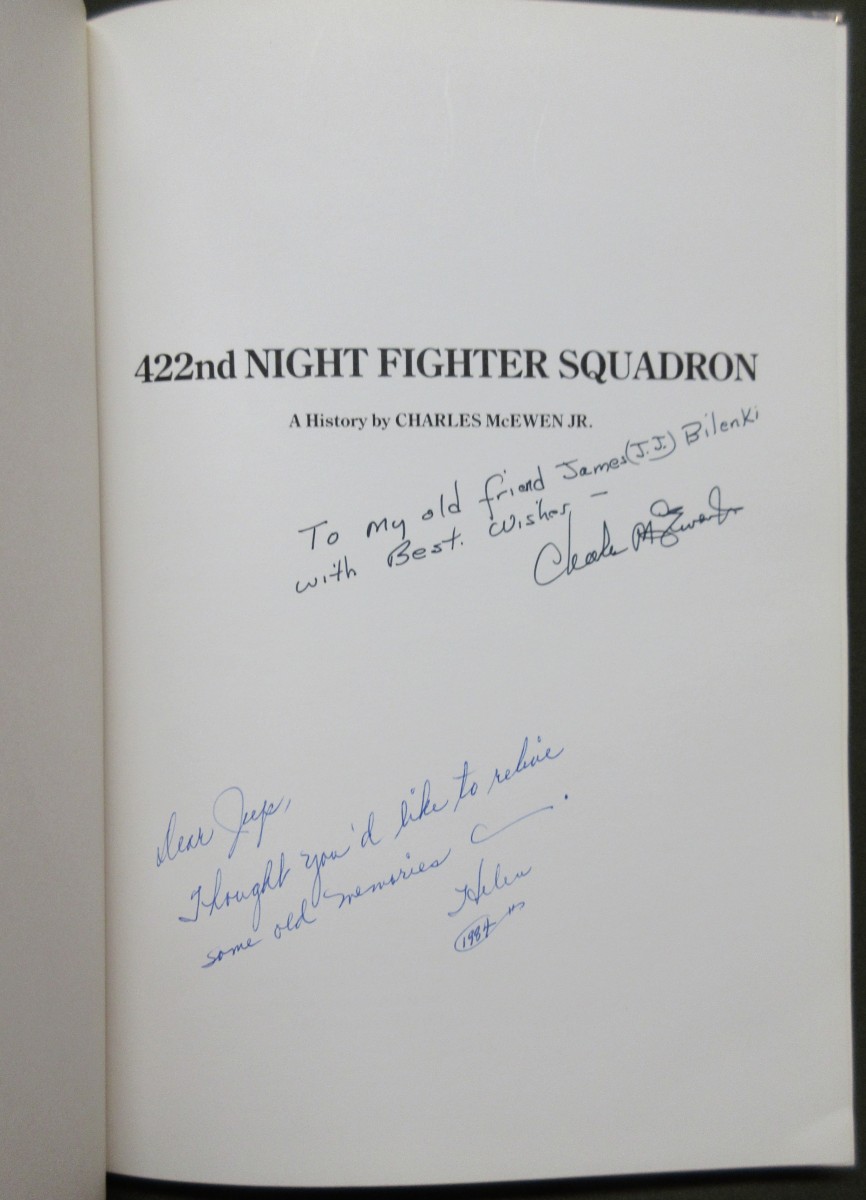 422nd NIGHT FIGHTER SQUADRON
A History by CHARLES McEWEN JR.
To my old friend James (J.J.) Bilenki
with Best. Wishes –
Charles McEwen Jr
Dear Jeep,
Thought you'd like to relive
some old memories — .
Helen
1984